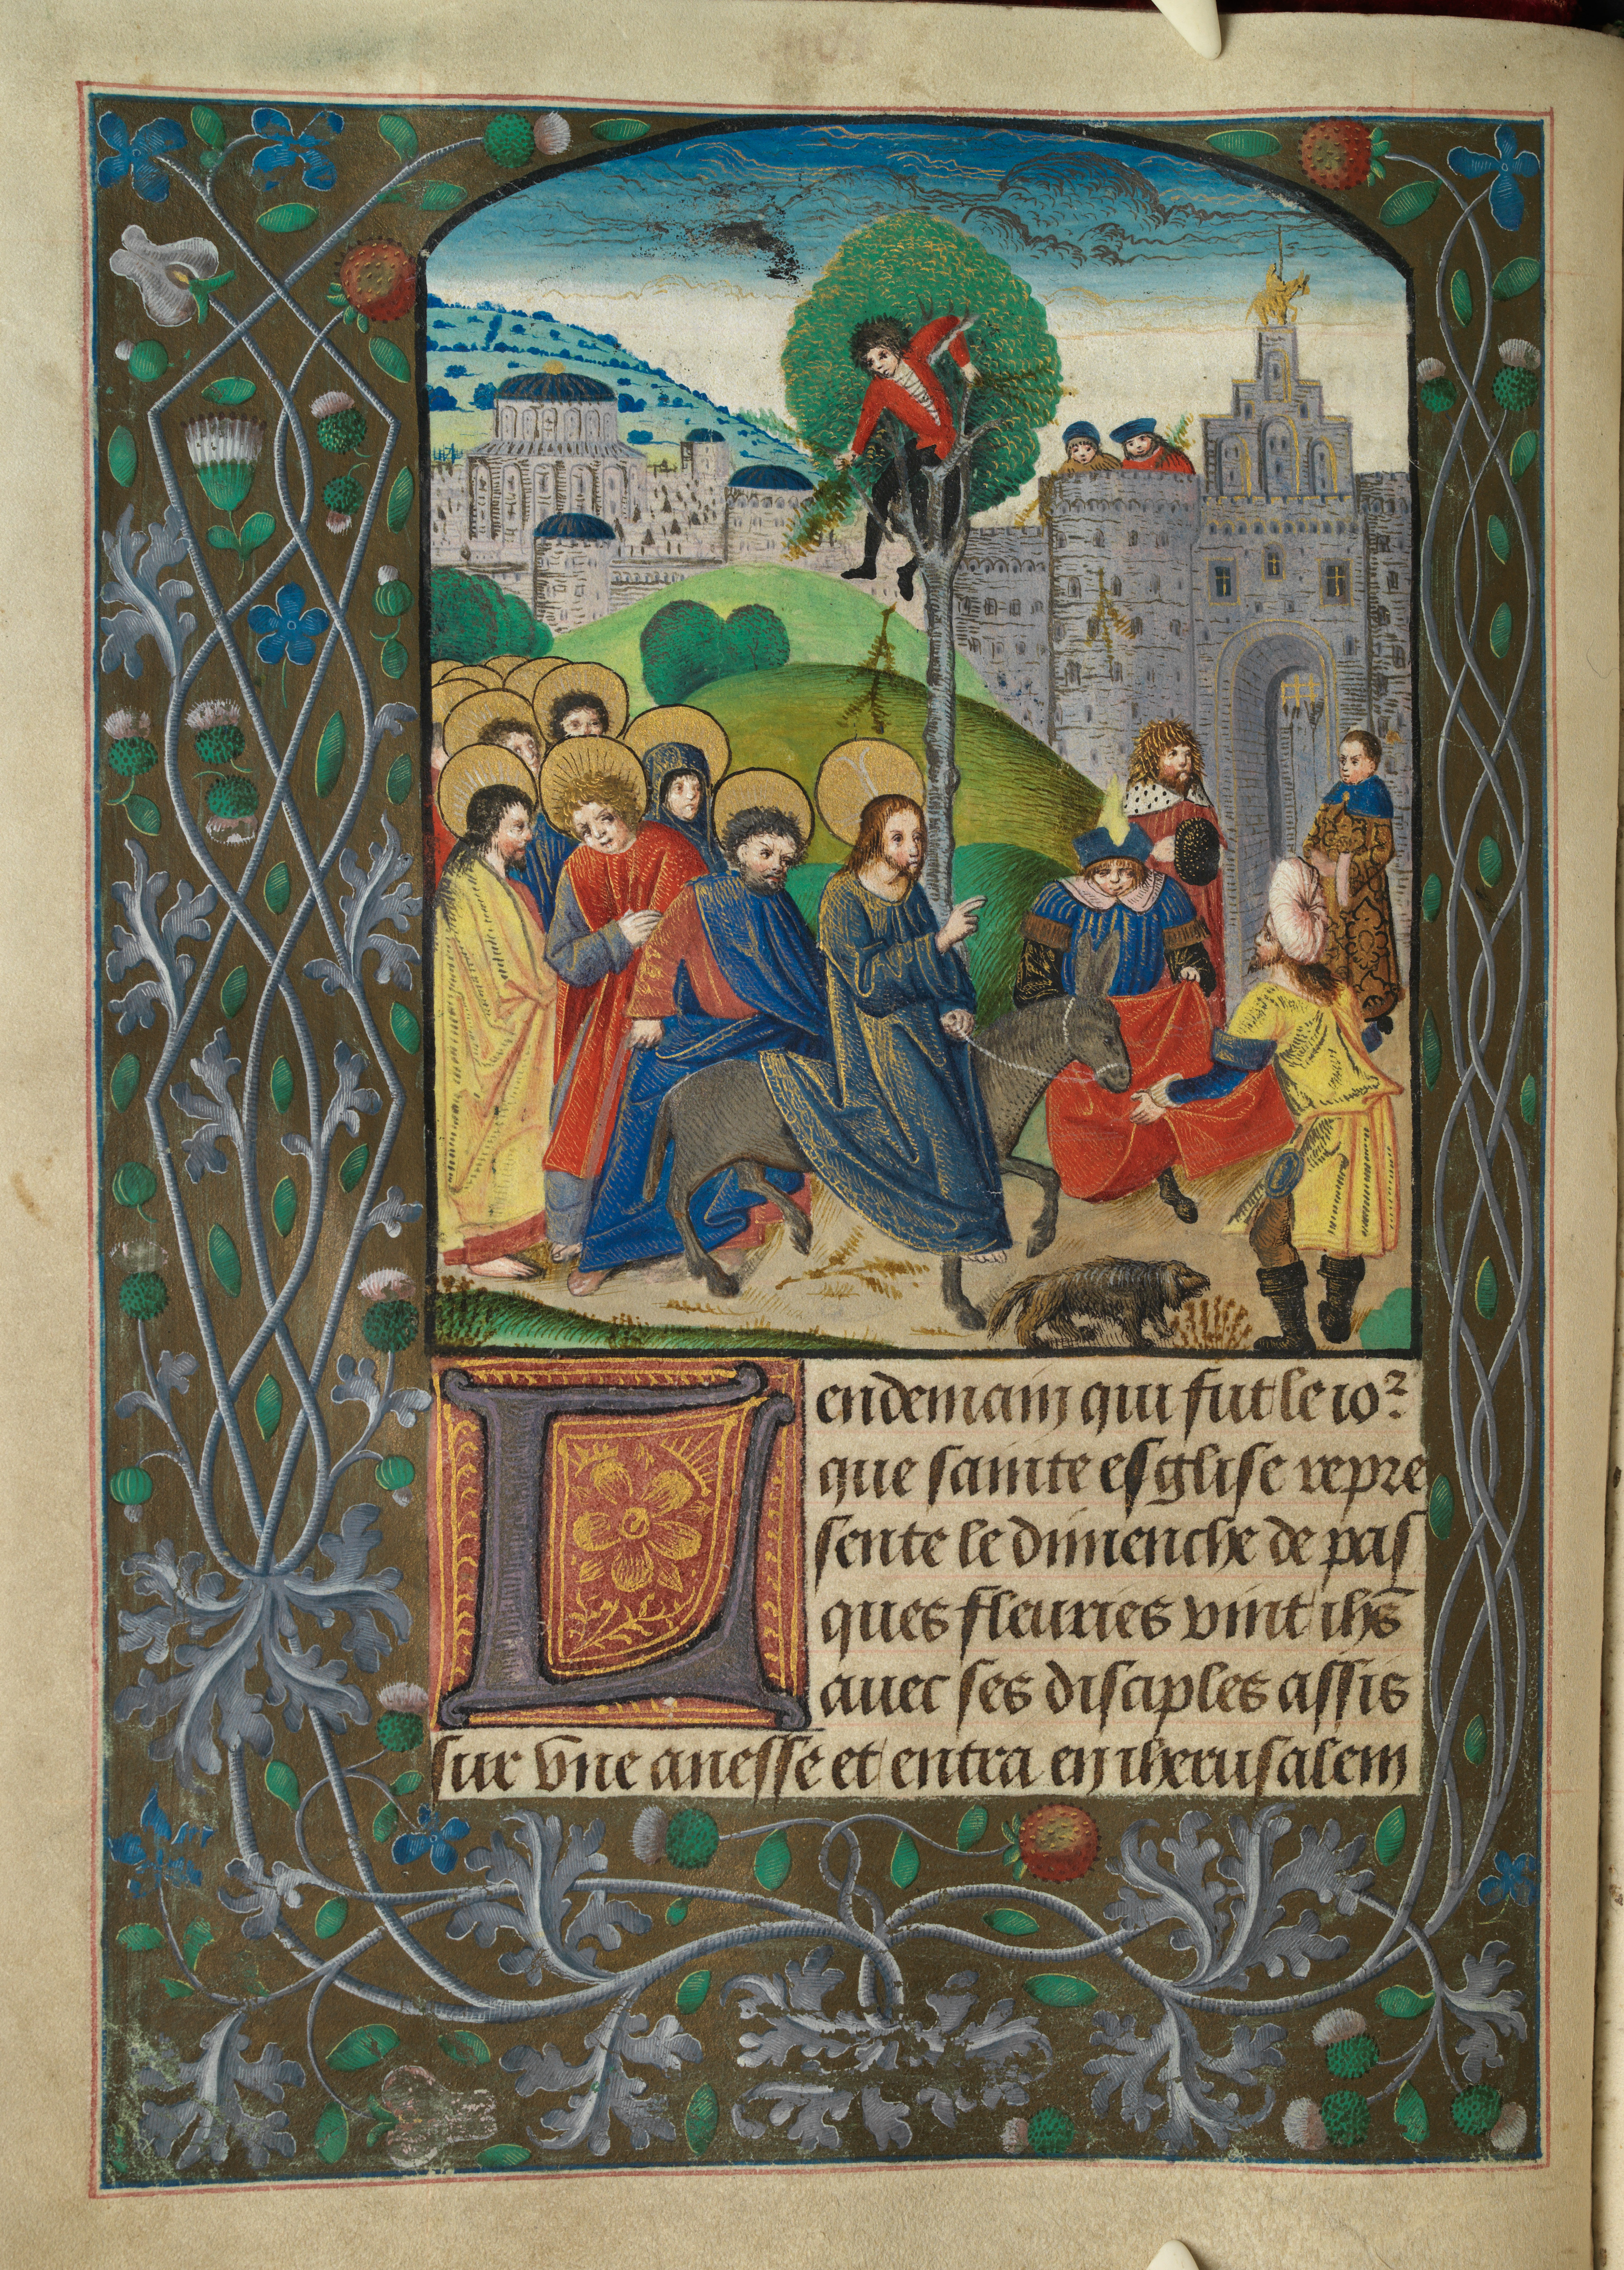 Lendemain qui fut le io2
que sainte esglise repre
sente le dimenche de pas
ques fleuries vint ihs
auec ses disciples assis
sur vne anesse et entra en iherusalem